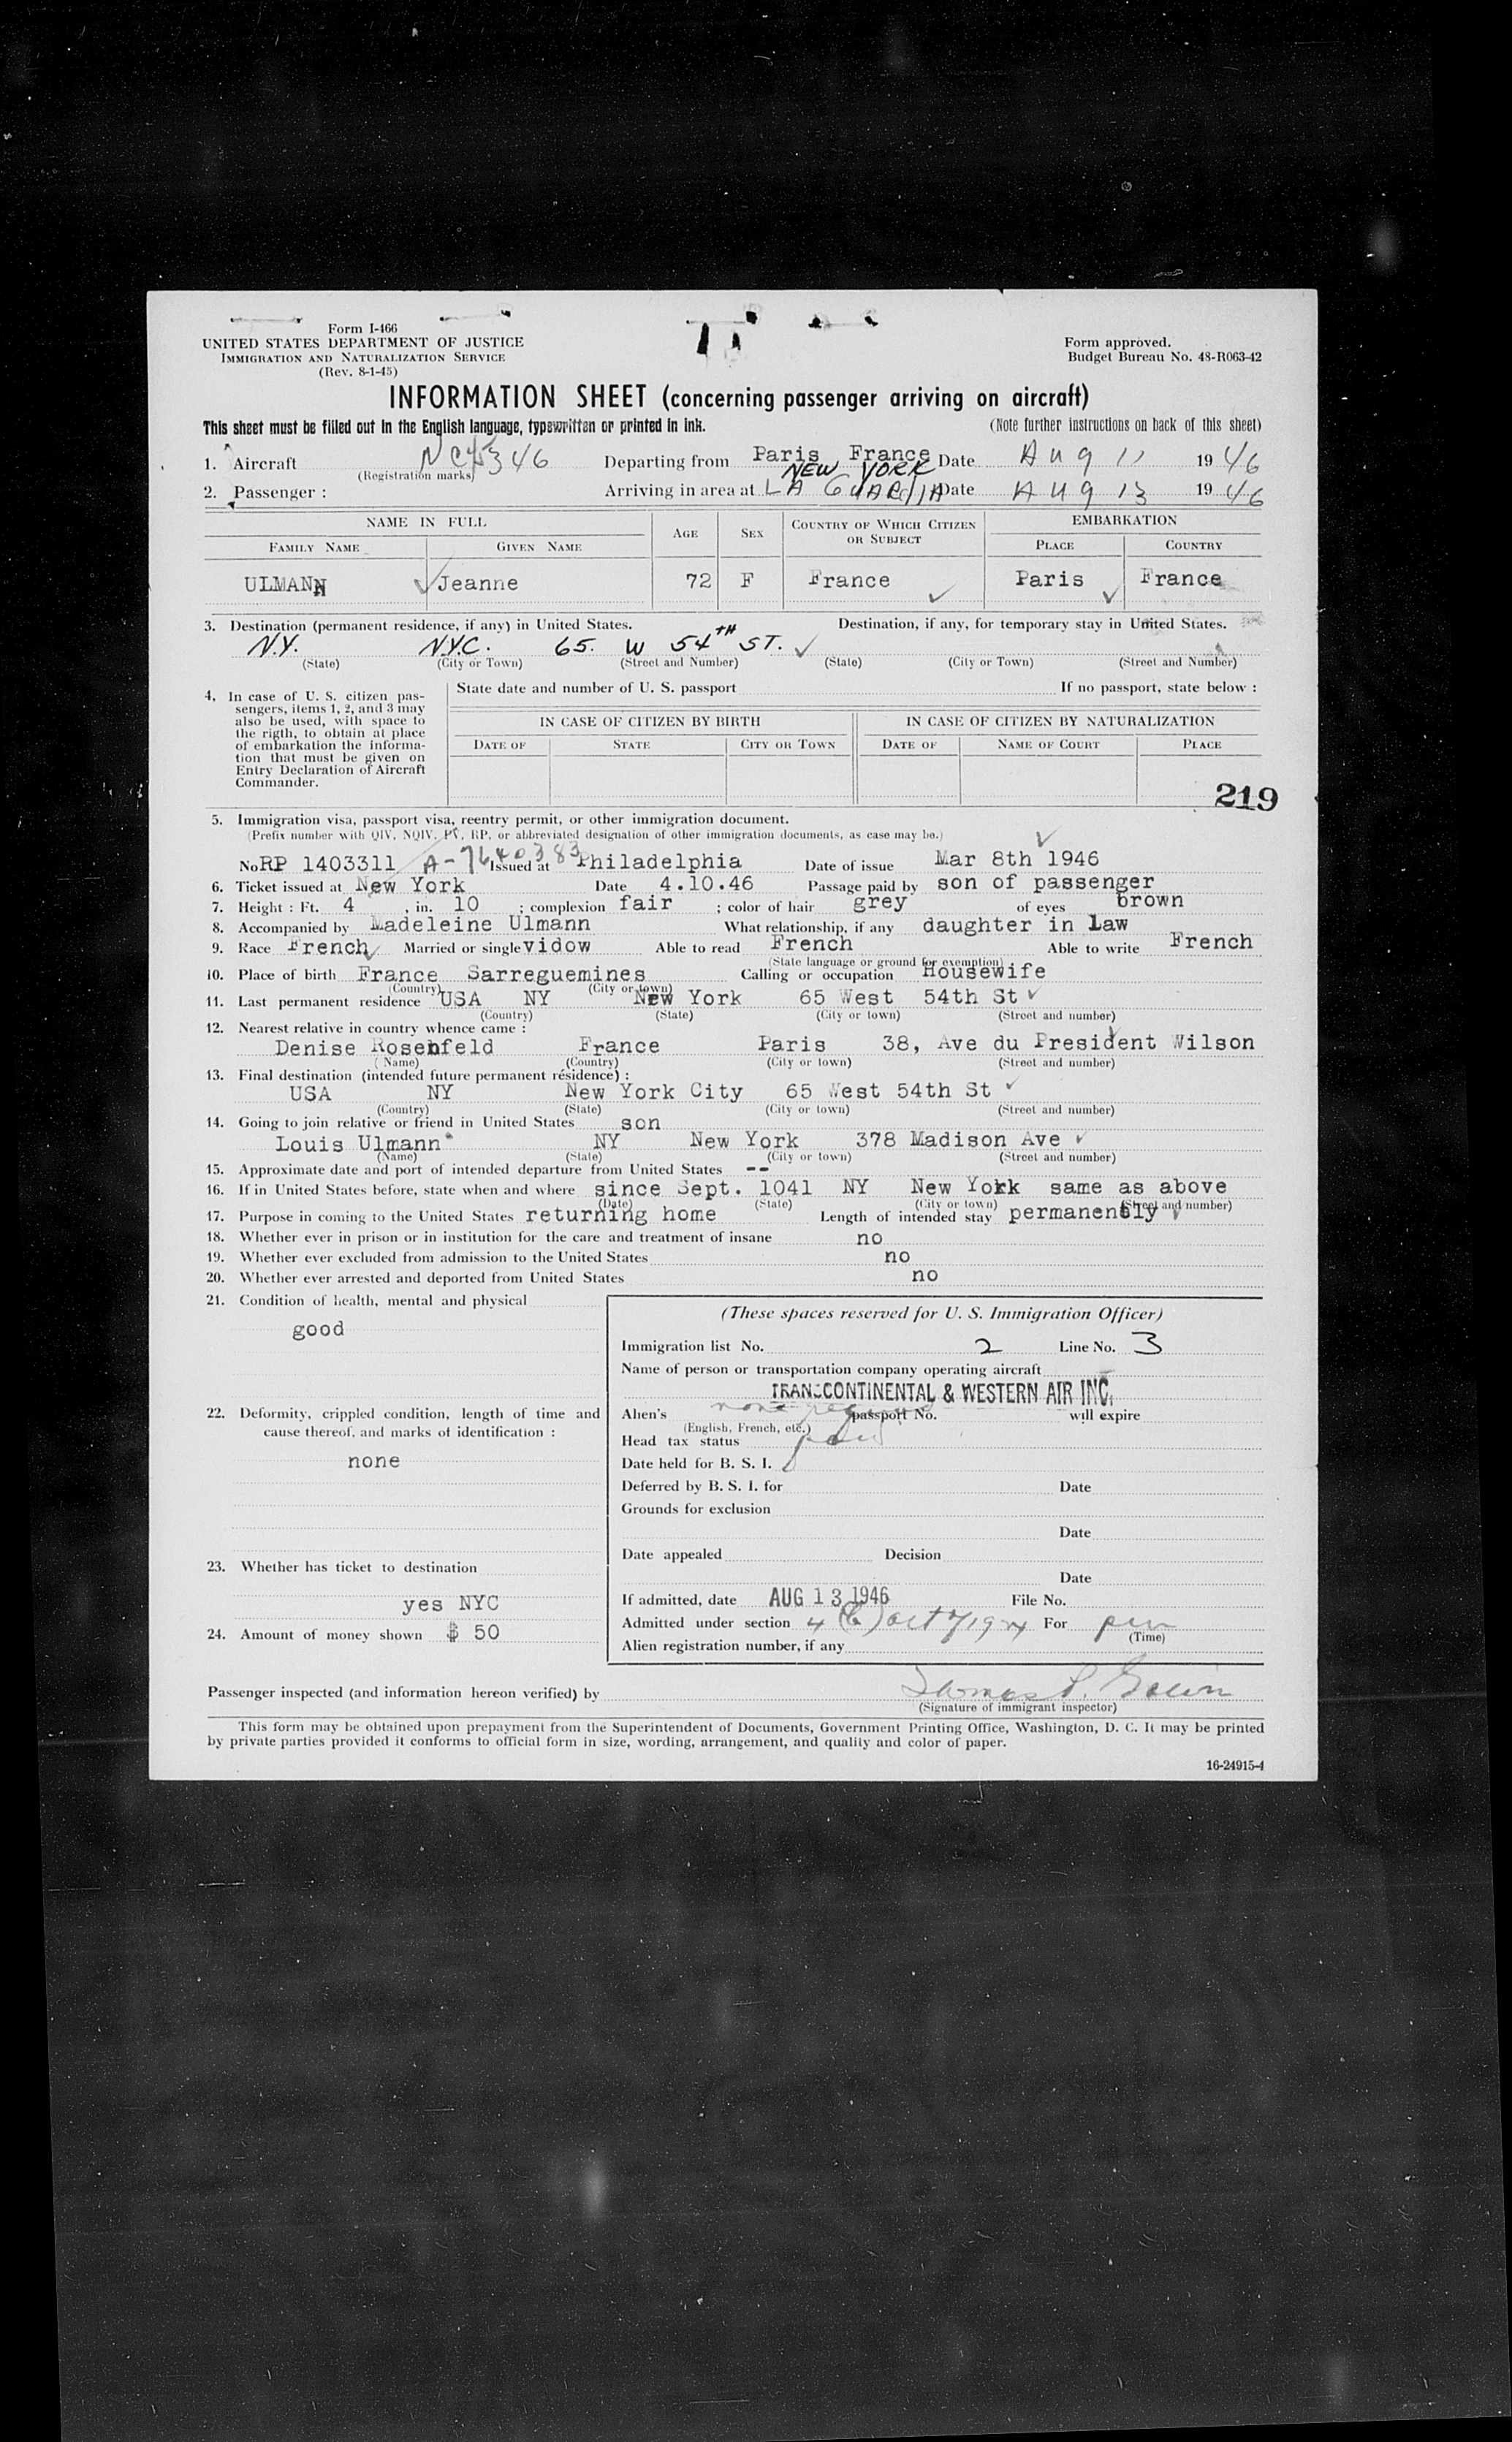 Form I-466
UNITED STATES DEPARTMENT OF JUSTICE
IMMIGRATION AND NATURALIZATION SERVICE
(Rev. 8-1-45)
Form approved.
Budget Bureau No. 48-R063-42
INFORMATION SHEET (concerning passenger arriving on aircraft)
This sheet must be filled out in the English language, typewritten or printed in ink. (Note further instructions on back of this sheet)
1. Aircraft Departing from Paris France Date Aug 11 1946
(Registration marks)
2. Passenger : Arriving in area at NEW YORK LA GUARDIA Date Aug 13 1946
NAME IN FULL AGE SEX COUNTRY OF WHICH CITIZEN OR SUBJECT EMBARKATION
FAMILY NAME GIVEN NAME PLACE COUNTRY
ULMANN Jeanne 72 F France Paris France
3. Destination (permanent residence, if any) in United States. Destination, if any, for temporary stay in United States.
N.Y. N.Y.C. 65. W 54TH ST.
(State) (City or Town) (Street and Number) (State) (City or Town) (Street and Number)
4. In case of U. S. citizen pas-
sengers, items 1, 2, and 3 may
also be used, with space to
the rigth, to obtain at place
of embarkation the informa-
tion that must be given on
Entry Declaration of Aircraft
Commander.
State date and number of U. S. passport If no passport, state below :
IN CASE OF CITIZEN BY BIRTH IN CASE OF CITIZEN BY NATURALIZATION
DATE OF STATE CITY OR TOWN DATE OF NAME OF COURT PLACE
219
5. Immigration visa, passport visa, reentry permit, or other immigration document.
(Prefix number with QIV, NQIV, PV, RP, or abbreviated designation of other immigration documents, as case may be.)
No. RP 1403311 A-7640383 Issued at Philadelphia Date of issue Mar 8th 1946
6. Ticket issued at New York Date 4.10.46 Passage paid by son of passenger
7. Height : Ft. 4 , in. 10 ; complexion fair ; color of hair grey of eyes brown
8. Accompanied by Madeleine Ulmann What relationship, if any daughter in law
9. Race French Married or single vidow Able to read French Able to write French
(State language or ground for exemption)
10. Place of birth France Sarreguemines Calling or occupation Housewife
(Country) (City or town)
11. Last permanent residence USA NY New York 65 West 54th St
(Country) (State) (City or town) (Street and number)
12. Nearest relative in country whence came :
Denise Rosenfeld France Paris 38, Ave du President Wilson
(Name) (Country) (City or town) (Street and number)
13. Final destination (intended future permanent résidence) :
USA NY New York City 65 West 54th St
(Country) (State) (City or town) (Street and number)
14. Going to join relative or friend in United States son
Louis Ulmann NY New York 378 Madison Ave
(Name) (State) (City or town) (Street and number)
15. Approximate date and port of intended departure from United States --
16. If in United States before, state when and where since Sept. 1041 NY New York same as above
(Date) (State) (City or town) (Street and number)
17. Purpose in coming to the United States returning home Length of intended stay permanently
18. Whether ever in prison or in institution for the care and treatment of insane no
19. Whether ever excluded from admission to the United States no
20. Whether ever arrested and deported from United States no
21. Condition of health, mental and physical
good
22. Deformity, crippled condition, length of time and
cause thereof, and marks of identification :
none
23. Whether has ticket to destination
yes NYC
24. Amount of money shown $ 50
(These spaces reserved for U. S. Immigration Officer)
Immigration list No. 2 Line No. 3
Name of person or transportation company operating aircraft
TRANSCONTINENTAL & WESTERN AIR INC.
Alien's none passport No. will expire
(English, French, etc.)
Head tax status paid
Date held for B. S. I.
Deferred by B. S. I. for Date
Grounds for exclusion
Date
Date appealed Decision
Date
If admitted, date AUG 13 1946 File No.
Admitted under section 4 (b) act of 1924 For
(Time)
Alien registration number, if any
Passenger inspected (and information hereon verified) by
(Signature of immigrant inspector)
This form may be obtained upon prepayment from the Superintendent of Documents, Government Printing Office, Washington, D. C. It may be printed
by private parties provided it conforms to official form in size, wording, arrangement, and quality and color of paper.
16-24915-4